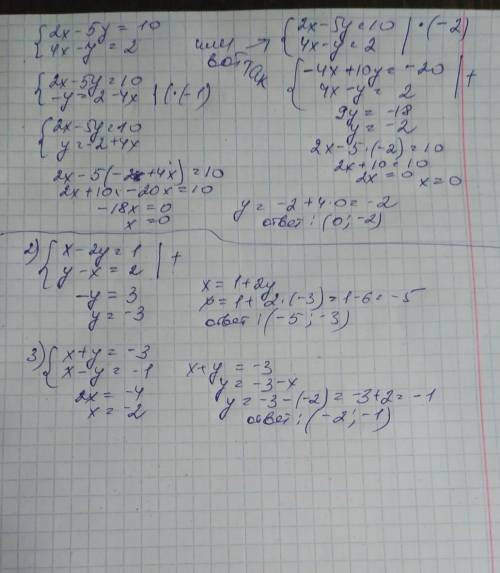 {2x-5y=10
{4x-y=2
{2x-5y=10
{-y=2-4x |(·(-1)
{2x-5y=10
{y=-2+4x
2x-5(-2+4x)=10
2x+10-20x=10
-18x=0
x=0
или вот так →
{2x-5y=10 |·(-2)
{4x-y=2
{-4x+10y=-20 |+
{4x-y=2
9y=-18
y=-2
2x-5·(-2)=10
2x+10=10
2x=0 x=0
y=-2+4·0=-2
ответ: (0;-2)
2) {x-2y=1 |+
{y-x=2
-y=3
y=-3
x=1+2y
x=1+2·(-3)=1-6=-5
ответ: (-5;-3)
3) {x+y=-3
{x-y=-1
2x=-4
x=-2
x+y=-3
y=-3-x
y=-3-(-2)=-3+2=-1
ответ: (-2;-1)